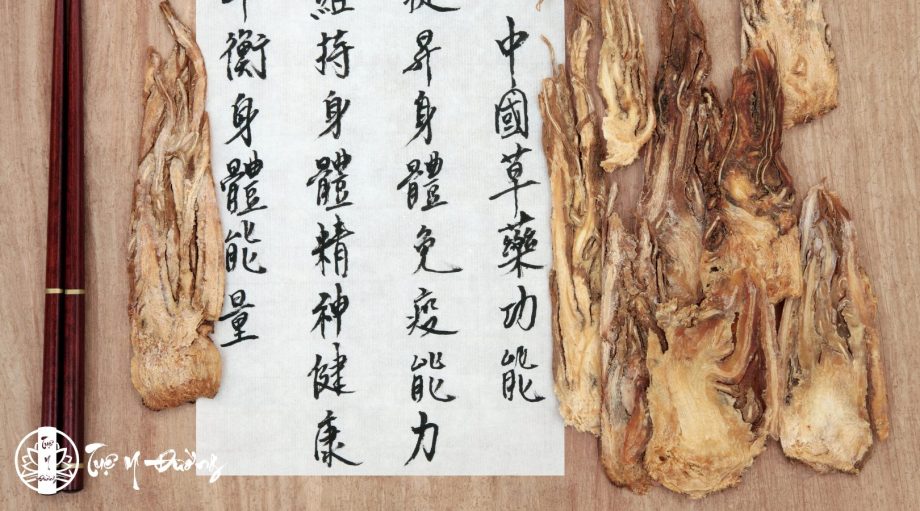 中國草藥功能
昇身體免疫能力
持身體精神健康
衡身體能量
Tuệ
Y
Đường
Tuệ Y Đường